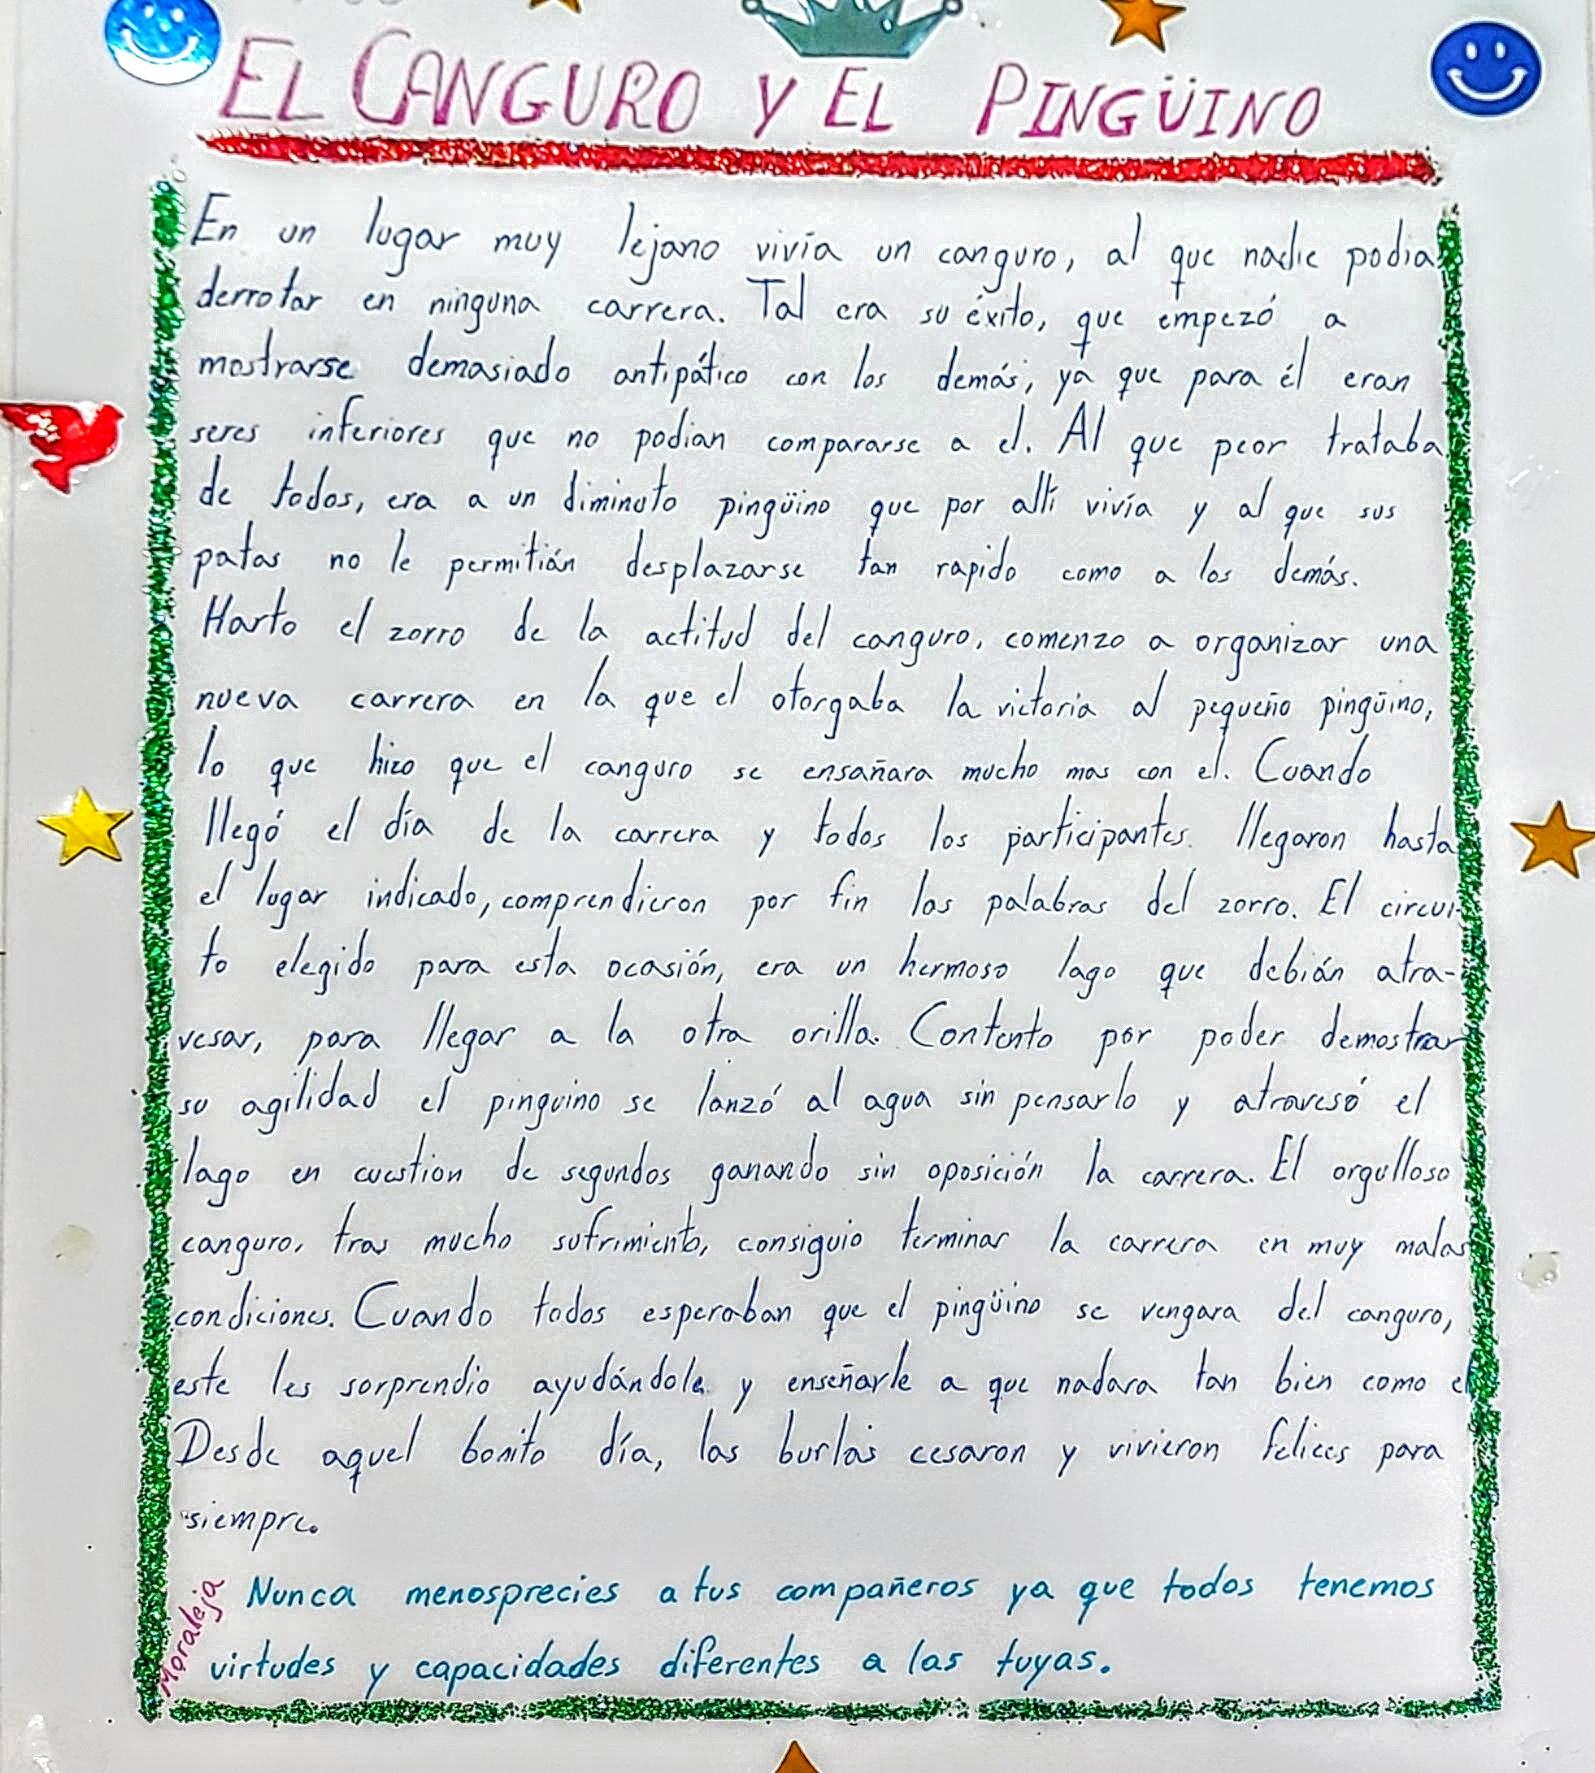 EL CANGURO Y EL PINGÜINO
En un lugar muy lejano vivía un canguro, al que nadie podia
derrotar en ninguna carrera. Tal era su éxito, que empezó a
mostrarse demasiado antipático con los demás, ya que para él eran
seres inferiores que no podian compararse a el. Al que peor trataba
de todos, era a un diminuto pingüino que por allí vivía y al que sus
patas no le permitián desplazarse tan rapido como a los demás.
Harto el zorro de la actitud del canguro, comenzo a organizar una
nueva carrera en la que el otorgaba la victoria al pequeño pingüino,
lo que hizo que el canguro se ensañara mucho mas con el. Cuando
llegó el día de la carrera y todos los participantes. llegaron hasta
el lugar indicado, comprendieron por fin las palabras del zorro. El circui-
to elegido para esta ocasión, era un hermoso lago que debián atra-
vesar, para llegar a la otra orilla. Contento por poder demostrar
su agilidad el pinguino se lanzó al agua sin pensarlo y atravesó el
lago en cuestion de segundos ganando sin oposición la carrera. El orgulloso
canguro, tras mucho sufrimiento, consiguio terminar la carrera en muy malas
condiciones. Cuando todos esperaban que el pingüino se vengara del canguro,
este les sorprendio ayudándole y enseñarle a que nadara tan bien como el
Desde aquel bonito día, las burlas cesaron y vivieron felices para
siempre.
Moraleja
Nunca menosprecies a tus compañeros ya que todos tenemos
virtudes y capacidades diferentes a las tuyas.